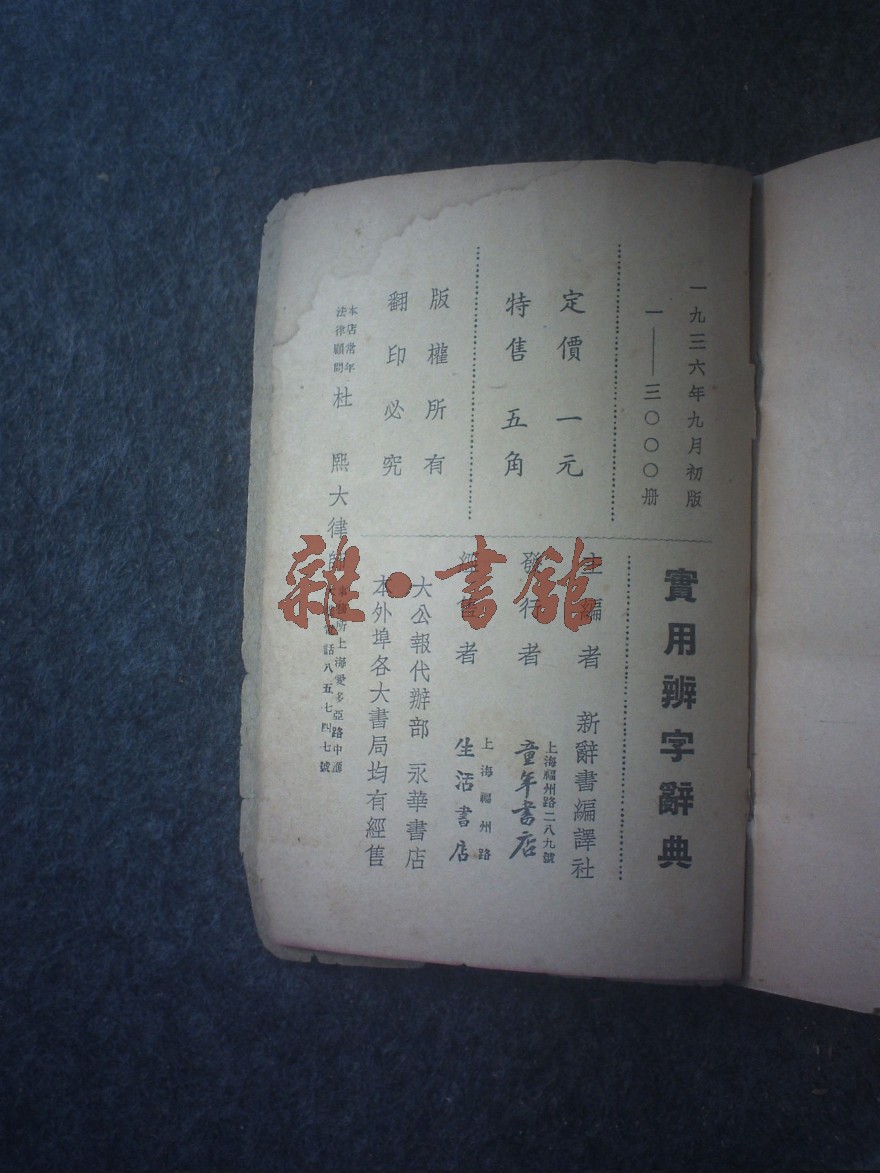 一九三六年九月初版
一——三〇〇〇册
定價一元
特售五角
版權所有
翻印必究
本店常年
法律顧問
杜 熙大律師
事務所上海愛多亞路中匯
電話八五七四七號
實用辨字辭典
主編者 新辭書編譯社
發行者
上海福州路二八九號
童年書店
經售者
上海福州路
生活書店
大公報代辦部 永華書店
本外埠各大書局均有經售
雜·書館